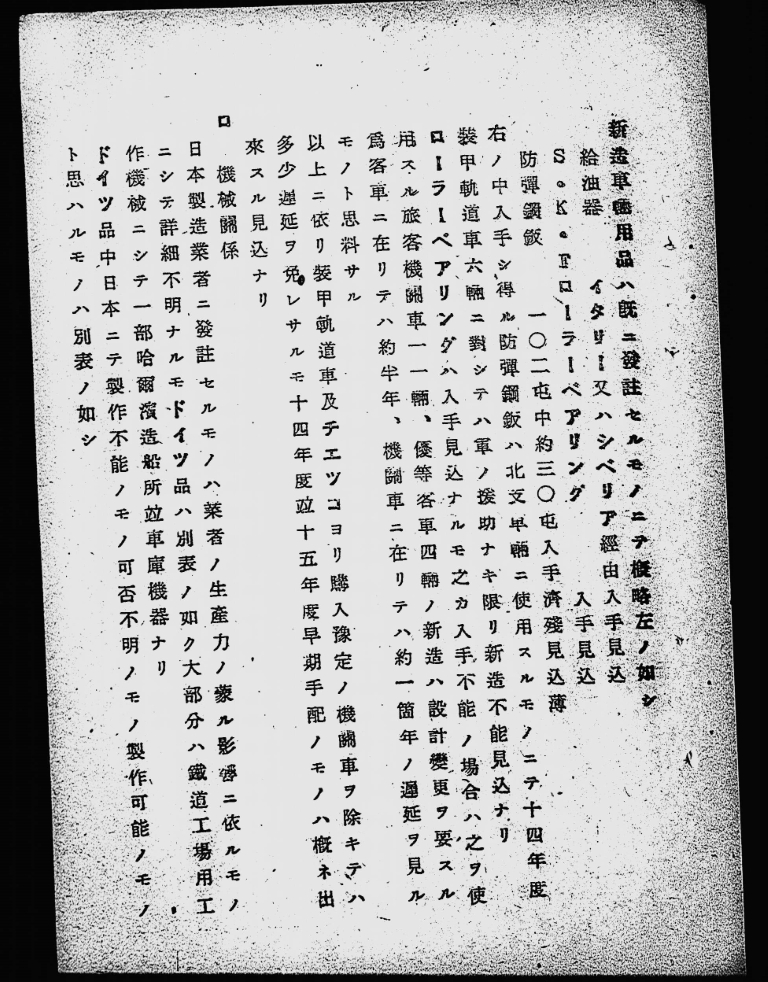 新造車輛用品ハ既ニ發註セルモノニテ槪略左ノ如シ
給油器 イタリー又ハシベリア經由入手見込
S。K。Fローラーベアリング 入手見込
防彈鋼鈑 一〇二屯中約三〇屯入手濟殘見込薄
右ノ中入手シ得ル防彈鋼鈑ハ北支車輛ニ使用スルモノニテ十四年度
裝甲軌道車六輛ニ對シテハ軍ノ援助ナキ限リ新造不能見込ナリ
ローラーベアリングハ入手見込ナルモ之カ入手不能ノ場合ハ之ヲ使
用スル旅客機關車一一輛、優等客車四輛ノ新造ハ設計變更ヲ要スル
爲客車ニ在リテハ約半年、機關車ニ在リテハ約一箇年ノ遲延ヲ見ル
モノト思料サル
以上ニ依リ裝甲軌道車及チエツコヨリ購入豫定ノ機關車ヲ除キテハ
多少遲延ヲ免レサルモ十四年度竝十五年度早期手配ノモノハ槪ネ出
來スル見込ナリ
ロ 機械關係
日本製造業者ニ發註セルモノハ業者ノ生產力ノ蒙ル影響ニ依ルモノ
ニシテ詳細不明ナルモドイツ品ハ別表ノ如ク大部分ハ鐵道工場用工
作機械ニシテ一部哈爾濱造船所竝車庫機器ナリ
ドイツ品中日本ニテ製作不能ノモノ可否不明ノモノ製作可能ノモノ
ト思ハルモノハ別表ノ如シ